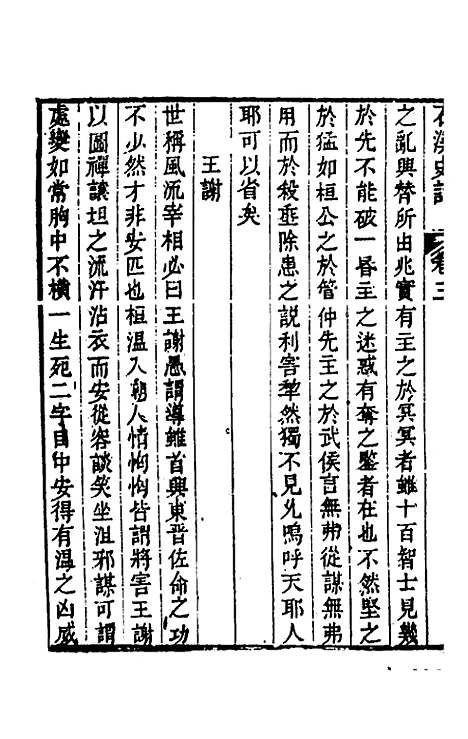 石溪史話 卷三
之亂興替所由兆實有主之於冥冥者雖十百智士見幾
於先不能破一昬主之迷惑有奪之鑒者在也不然堅之
於猛如桓公之於管仲先主之於武侯言無弗從謀無弗
用而於殺垂除患之説利害犂然獨不見允嗚呼天耶人
耶可以省矣
王謝
世稱風流宰相必曰王謝愚謂導雖首興東晉佐命之功
不少然才非安匹也桓温入朝人情恟恟皆謂將害王謝
以圖禪讓坦之流汗沾衣而安從容談笑坐沮邪謀可謂
處變如常胸中不橫一生死二字目中安得有温之凶威